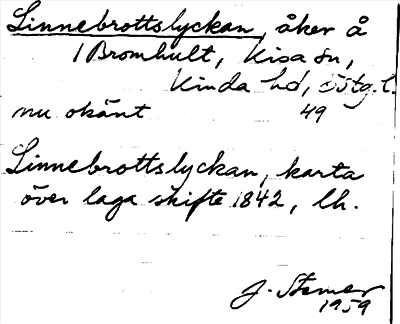 Linnebrottslyckan, åker å
1 Bromhult, Kisa sn,
Kinda hd, Östg. l.
nu okänt 49
Linnebrottslyckan, karta
över laga skifte 1842, lh.
J. Stemer
1959